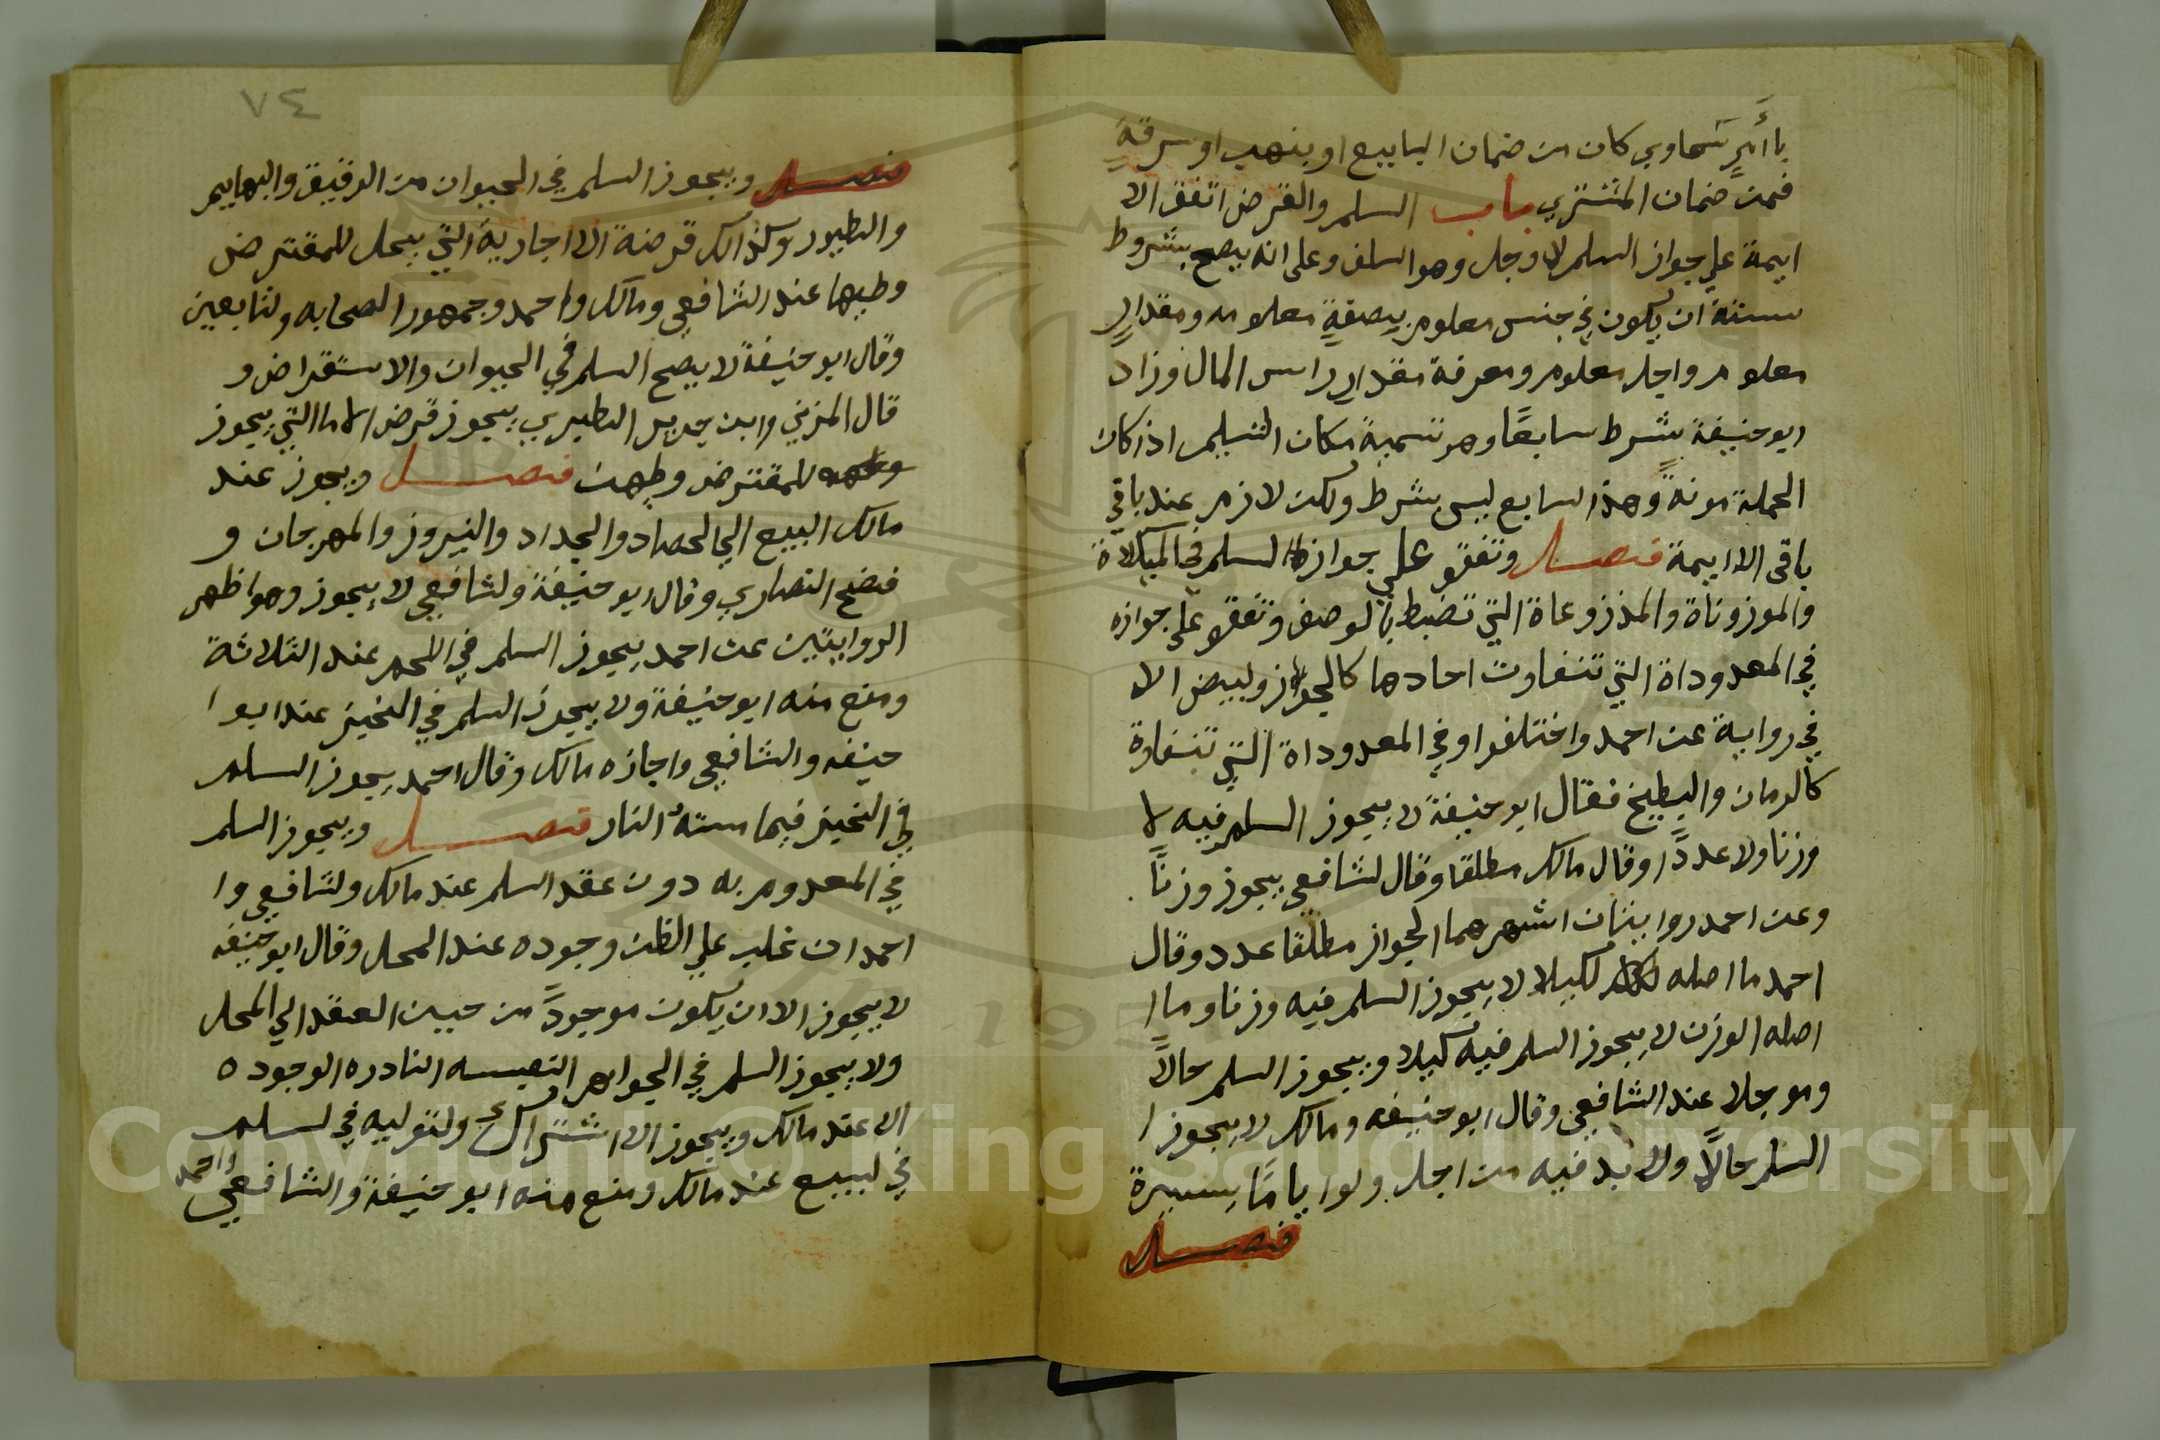 بأمرٍ سَماوي كان من ضمان البايع او بنهب او سرقةٍ
فمن ضمان المشتري باب السلم والقرض اتفق الا
ايمة علي جواز السلم لاوجل وهو السلف وعلى انه يصح بشروط
ستة ان يكون في جنس معلوم بصفةٍ معلومه ومقدارٍ
معلوم واجل معلوم ومعرفة مقدار راس المال وزاد
ابو حنيفة بشرط سابعًا وهو تسمية مكان التسليم اذا كان
الحملة مونةً وهذا السابع ليس بشرط ولكن لازم عند باقي
باقى الا ايمة فصل وتفقو علي جواز السلم في المكيلاة
والموزوناة والمذزوعاة التي تضبط بالوصف وتفقو على جوازه
في المعدوداة التي تتفاوت احادها كالجواز ولبيض الا
في رواية عن احمد واختلفوا وفي المعدوداة التي تتفاوة
كالرمان والبطيخ فقال ابو حنيفة لا يجوز السلم فيه لا
وزنا ولا عددًا وقال مالك مطلقا وقال لشافعي يجوز وزنًا
وعن احمد روايتان اشهرهما الجواز مطلقا عدد وقال
احمد ما اصله لكيلا لا يجوز السلم فيه وزنا وما ا
اصله الوزن لا يجوز السلم فيه كيلا ويجوز السلم حالاً
وموجلا عند الشافعي وقال ابو حنيفه ومالك لا يجوز ا
السلم حالاً ولا بد فيه من اجل ولو اياما يسيرة
فصل
٧٤
فصل ويجوز السلم في الحيوان من الرقيق والبهايم
والطيور وكذالك قرضة الا اجارية التي يحل للمقترض
وطيها عند الشافعي ومالك واحمد وجمهور الصحابه ولتابعين
وقال ابو حنيفة لا يصح السلم في الحيوان والاستقراض و
قال المزني وابن جرير الطبري يجوز قرض الاما التي يجوز
للمقترض وطيهن فصل ويجوز عند
مالك البيع الي الحصاد والجداد والنيروز والمهرجان و
فضح النصاري وقال ابو حنيفة ولشافعي لا يجوز وهو اظهر
الروايتين عن احمد يجوز السلم في اللحم عند الثلاثة
ومنع منه ابو حنيفة ولا يجوز السلم في الخبز عند ابوا
حنيفه والشافعي واجازه مالك وقال احمد يجوز السلم
في الخبز فيما مسته النار فصل ويجوز السلم
في المعدوم به دون عقد السلم عند مالك ولشافعي وا
احمد ان غلب علي الظن وجوده عند المحل وقال ابو حنيفه
لا يجوز الا ان يكون موجودً من حين العقد الي المحل
ولا يجوز السلم في الجواهر النفيسه النادره الوجوده
الا عند مالك ويجوز الا اشتراك ولتوليه في لسلم
في لبيع عند مالك ومنع منه ابو حنيفة والشافعي واحمد
Copyright © King Saud University